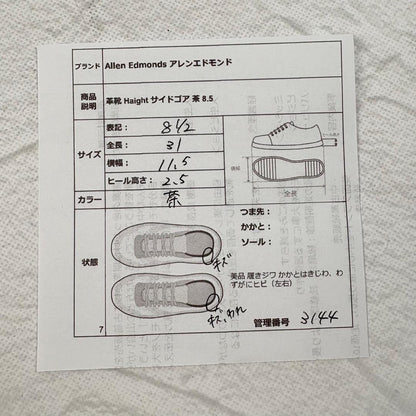 ブランド Allen Edmonds アレンエドモンド
商品
説明
革靴 Haight サイドゴア 茶 8.5
サイズ
表記： 8 1/2
全長： 31
横幅： 11.5
ヒール高さ： 2.5
ヒール高さ
横幅
全長
カラー 茶
状態
つま先：
かかと：
ソール：
キズ
美品 履きジワ かかとはきじわ、わ
ずがにヒビ（左右）
キズ、われ
7
管理番号 3144